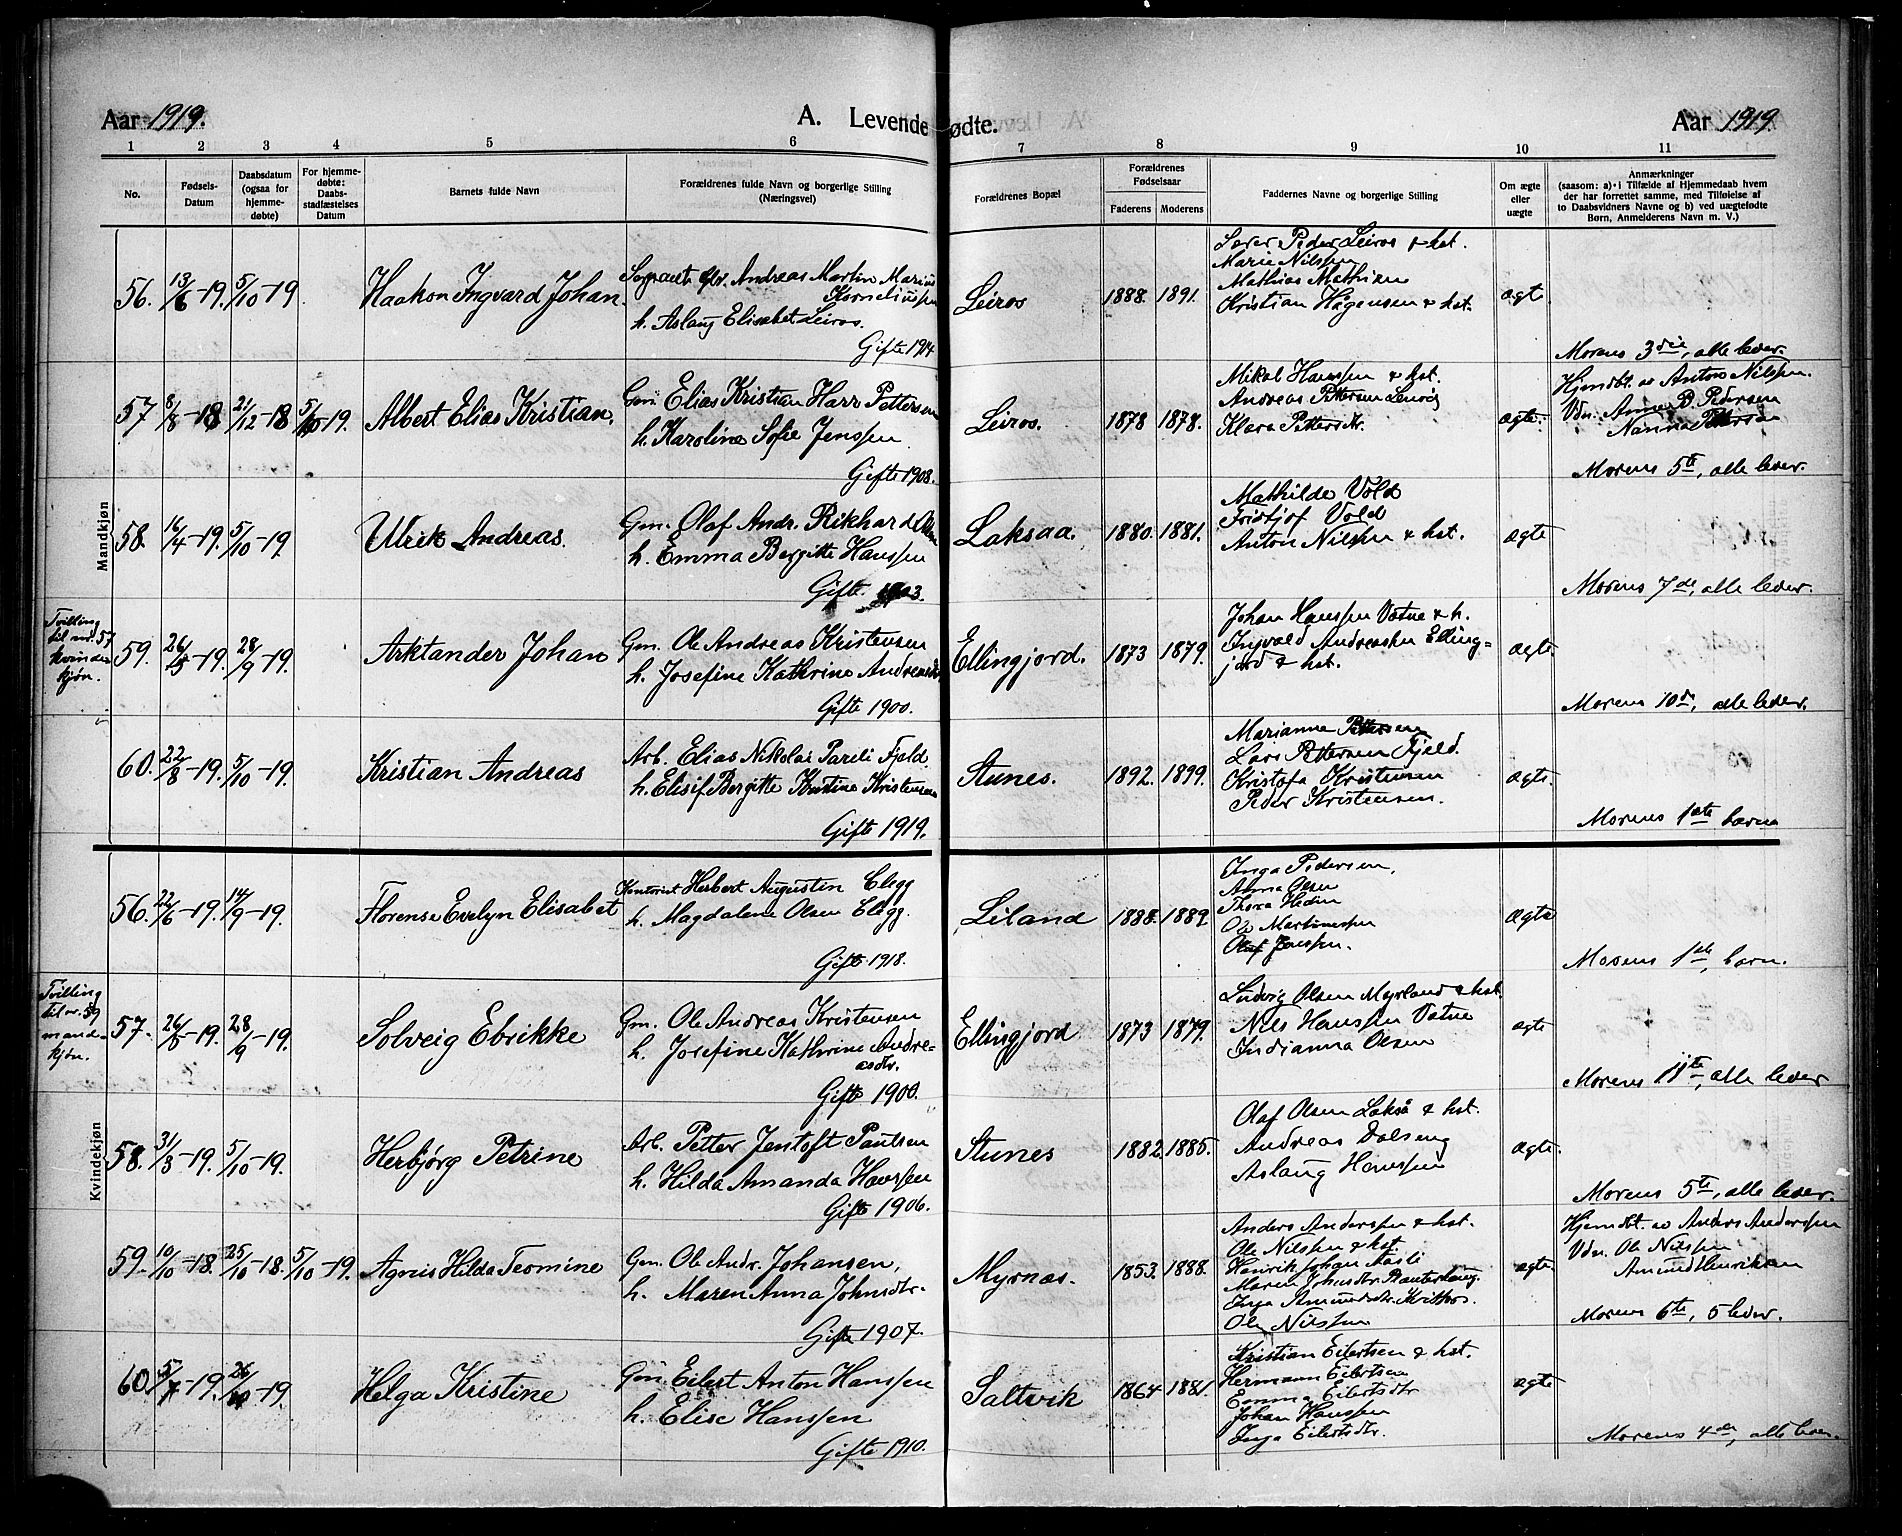 Aar 1919.
A. Levende
1 2 3 4 5 6
No.
Fødsels-
Datum
Daabsdatum
(ogsaa for
hjemme-
døbte)
For hjemme-
døbte:
Daabs-
stadfæstelses
Datum
Barnets fulde Navn
Forældrenes fulde Navn og borgerlige Stilling
(Næringsvei)
ødte.
Aar 1919.
7 8 9 10 11
Forældrenes Bopæl
Forældrenes
Fødselsaar
Faderens Moderens
Faddernes Navne og borgerlige Stilling
Om ægte
eller
uægte
Anmærkninger
(saasom: a) i Tilfælde af Hjemmedaab hvem
der har forrettet samme, med Tilføielse af
to Daabsvidners Navne og b) ved uægtefødte
Børn, Anmelderens Navn m. V.)
Mandkjøn
56. 13/6-19. 5/10-19 Haakon Ingvard Johan.
Andreas Martin Marius
Korneliussen
h. Aslaug Elisabet Leiros.
Gifte 1914
Leiros 1888. 1891.
Peder Leiros & hst.
Marie Nilssen
Mathias Mathisen
Kristian Hågensen & hst.
ægte
Morens 3die, alle lever.
57 8/8-18 21/12-18 5/10-19. Albert Elias Kristian.
Gm. Elias Kristian Harr Pettersen
h. Karoline Sofie Jenssen
Gifte 1908.
Leiros. 1878 1878.
Mikal Hanssen & hst.
Andreas Pettersen Leiros
Klara Pettersdtr.
ægte
Hjemdbt. av Anton Nilssen.
Vdn. Anna P. Pedersen
Nanna Pettersen
Morens 5te, alle lever.
58. 16/4-19. 5/10-19 Ulrik Andreas.
Gm. Olaf Andr. Rikhard Olsen
h. Emma Bergitte Hanssen
Gifte 1903.
Laksaa. 1880. 1881.
Mathilde Vold
Fridtjof Vold
Anton Nilsen & hst.
ægte
Morens 7de, alle lever.
Tvilling
til nr. 57
kvindekjøn.
59. 26/5-19. 28/9-19. Arktander Johan
Gm. Ole Andreas Kristensen
h. Josefine Kathrine Andreasdtr
Gifte 1900.
Ellingjord. 1873 1879.
Johan Hanssen Vatne & h.
Ingvald Andreassen Elling-
jord & hst.
ægte
Morens 10de, alle lever.
60. 22/8-19. 5/10-19. Kristian Andreas
Arb. Elias Nikolai Pareli Fjeld
h. Elisif Bergitte Kristine Kristensen
Gifte 1919.
Stunes. 1892. 1899.
Marianne Pettersen
Lars Pettersen Fjeld.
Kristofa Kristensen
Peder Kristensen.
ægte
Morens 1ste barn
Kvindekjøn
56. 22/6-19. 14/9-19. Florense Evelyn Elisabet
Kontorist Herbert Augustin Clegg
h. Magdalene Olsen Clegg.
Gifte 1918.
Leiland 1888. 1889.
Inga Pedersen,
Anna Olsen
Thora Hedin
Ole Martinussen
Olaf Jenssen.
ægte
Morens 1ste, barn.
Tvilling
til nr. 59
mand-
kjøn.
57. 26/5-19. 28/9-19. Solveig Ebrikke
Gm. Ole Andreas Kristensen
h. Josefine Kathrine Andre-
asdtr.
Gifte 1900.
Ellingjord 1873 1879.
Ludvig Olsen Myrland & hst.
Nils Hanssen Vatne
Indianna Olsen
ægte
Morens 11te, alle lever
58. 31/3-19. 5/10-19. Herbjørg Petrine
Arb. Petter Jentoft Paulsen
h. Hilda Amanda Hanssen
Gifte 1906.
Stunes 1882. 1885.
Olaf Olsen Lakså & hst.
Andreas Dalseng
Aslaug Hanssen
ægte.
Morens 5te, alle lever.
59. 10/10-18. 25/10-18. 5/10-19. Agnis Hilda Teomine
Gm. Ole Andr. Johansen,
h. Maren Anna Johnsdtr.
Gifte 1907.
Myrnæs. 1853. 1888.
Anders Anderssen & hst.
Ole Nilssen & hst
Henrik Johan Aasli
Maren Johnsdtr.
Inga Amundsdtr.
Ole Nilssen
ægte
Hjemdbt. av Anders Anderssen
Vdn. Ole Nilssen
Amund Henriksen
Morens 6te, 5 lever.
60. 5/7-19. 26/10-19. Helga Kristine
Gm. Eilert Anton Hanssen
h. Elise Hanssen
Gifte 1910.
Saltvik 1864 1881.
Kristian Eilertsen & hst.
Hermann Eilertsen
Emma Eilertsdtr
Johan Hanssen
Inga Eilertsdtr.
ægte
Morens 4de, alle lever.